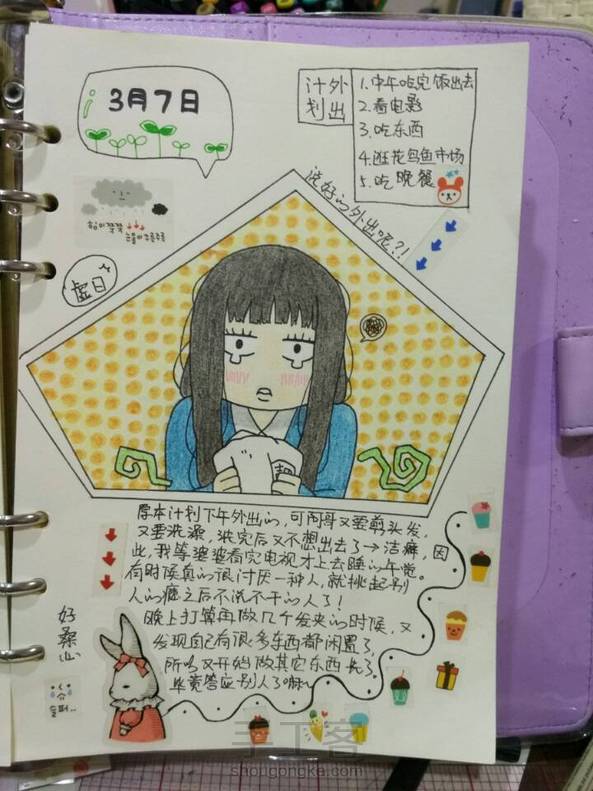 3月7日
外出计划
1.中午吃完饭出去
2.看电影
3.吃东西
4.逛花鸟鱼市场
5.吃晚餐
说好的外出呢?!
虚日
原本计划下午外出的,可阿哥又要剪头发,
又要洗澡,洗完后又不想出去了→洁癖,因
此,我等婆婆看完电视才上去睡的午觉。
有时候真的很讨厌一种人,就挑起别
人的瘾之后不洗不干的人了!
晚上打算再做几个发夹的时候,又
发现自己有很多东西都闲置了,
所以又开始做其它东西去了。
毕竟答应别人了嘛~
好桑心
슬퍼..
手工客
shougongke.com